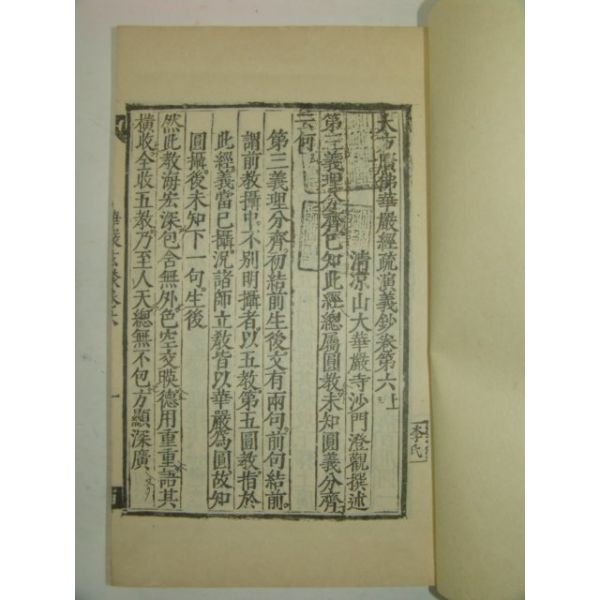 大方廣佛華嚴經疏演義鈔卷第六上
清凉山大華嚴寺沙門澄觀撰述
第三義理分齊已知此經總屬圓教未知圓義分齊
云何
第三義理分齊初結前生後文有兩句前句結前
謂前教攝中不別明攝者以五教第五圓教指於
此經義當已攝况諸師立教皆以華嚴爲圓故知
圓攝後未知下一句生後
然此教海宏深包含無外色空交暎德用重重語其
橫收全收五教乃至人天總無不包方顯深廣
李氏